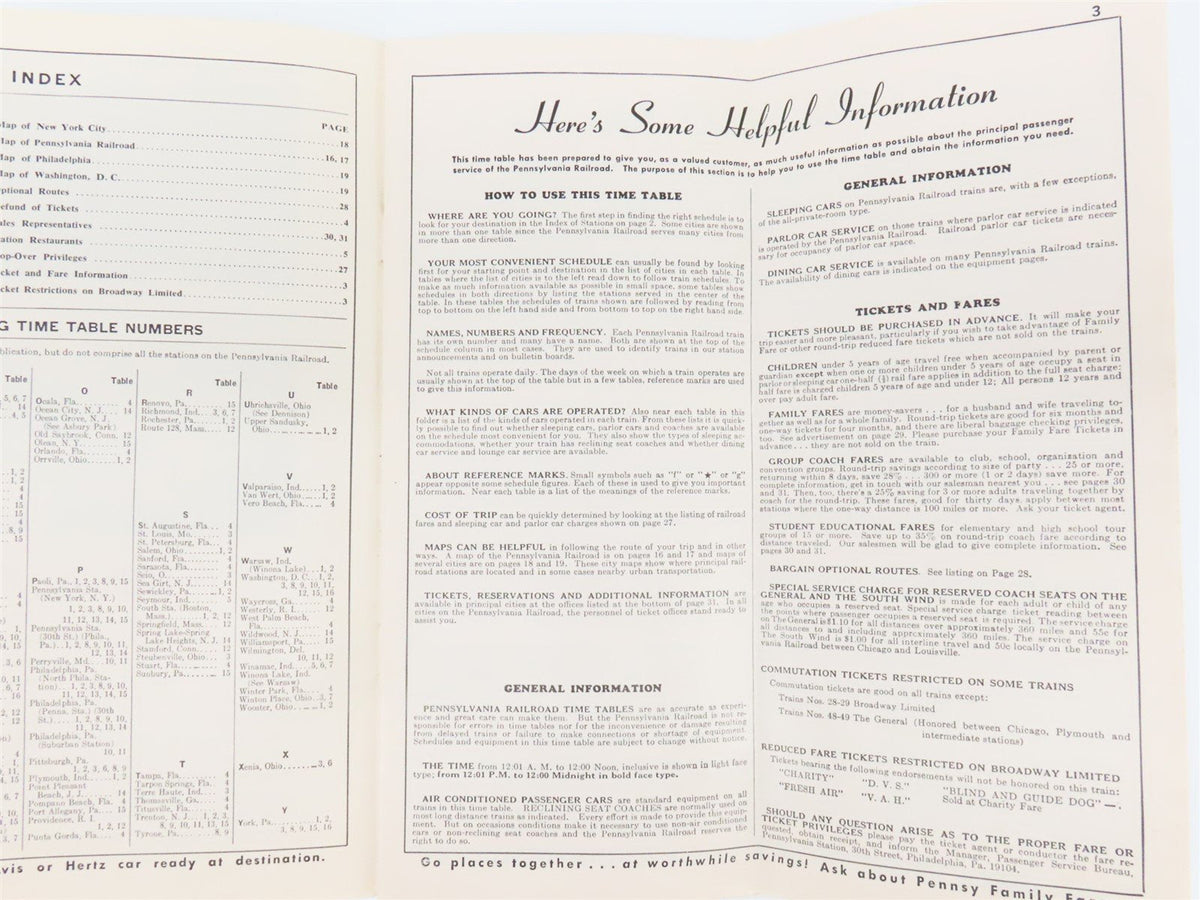 INDEX
PAGE
Map of New York City 18
Map of Pennsylvania Railroad 16, 17
Map of Philadelphia 19
Map of Washington, D. C. 19
ptional Routes 28
efund of Tickets 4
ales Representatives 30, 31
ation Restaurants 5
op-Over Privileges 27
icket and Fare Information 3
icket Restrictions on Broadway Limited 3
G TIME TABLE NUMBERS
ublication, but do not comprise all the stations on the Pennsylvania Railroad.
Table
O
Ocala, Fla. 4
Ocean City, N. J. 14
Ocean Grove, N. J.
(See Asbury Park)
Old Saybrook, Conn. 12
Olean, N. Y. 15
Orlando, Fla. 4
Orrville, Ohio 1, 2
P
Paoli, Pa. 1, 2, 3, 8, 9, 15
Pennsylvania Sta.
(New York, N. Y.)
1, 2, 3, 8, 9, 10,
11, 12, 13, 14, 15
Pennsylvania Sta.
(30th St.) (Phila.,
Pa.) 1, 2, 8, 9, 10, 11,
12, 13, 14
Perryville, Md. 10, 11
Philadelphia, Pa.
(North Phila. Sta-
tion) 1, 2, 3, 8, 9, 10,
11, 12, 13, 14, 15
Philadelphia, Pa.
(Penna. Sta.) (30th
St.) 1, 2, 8, 9, 10,
11, 12, 13, 14
Philadelphia, Pa.
(Suburban Station)
10, 11
Pittsburgh, Pa.
1, 2, 3, 6, 8, 9
Plymouth, Ind. 1, 2
Point Pleasant
Beach, N. J. 14
Pompano Beach, Fla. 4
Port Allegany, Pa. 15
Providence, R. I.
1, 2, 12
Punta Gorda, Fla. 4
Table
R
Renovo, Pa. 15
Richmond, Ind. 3, 6, 7
Rochester, Pa. 1, 2
Route 128, Mass. 12
S
St. Augustine, Fla. 4
St. Louis, Mo. 3
St. Petersburg, Fla. 4
Salem, Ohio 1, 2
Sanford, Fla. 4
Sarasota, Fla. 4
Scio, O. 3
Sea Girt, N. J. 14
Sewickley, Pa. 1, 2
Seymour, Ind. 5
South Sta. (Boston,
Mass.) 1, 2, 12
Springfield, Mass. 12
Spring Lake-Spring
Lake Heights, N. J. 14
Stamford, Conn. 12
Steubenville, Ohio 3
Stuart, Fla. 4
Sunbury, Pa. 15
T
Tampa, Fla. 4
Tarpon Springs, Fla. 4
Terre Haute, Ind. 3
Thomasville, Ga. 4
Titusville, Fla. 4
Trenton, N. J. 1, 2, 3,
8, 9, 10, 11, 13, 15
Tyrone, Pa. 8, 9
Table
U
Uhrichsville, Ohio
(See Dennison)
Upper Sandusky,
Ohio 1, 2
V
Valparaiso, Ind. 1, 2
Van Wert, Ohio 1, 2
Vero Beach, Fla. 4
W
Warsaw, Ind.
(Winona Lake) 1, 2
Washington, D. C. 1, 2,
3, 8, 9, 10, 11,
12, 15, 16
Waycross, Ga. 4
Westerly, R. I. 12
West Palm Beach,
Fla. 4
Wildwood, N. J. 14
Williamsport, Pa. 15
Wilmington, Del.
10, 11, 12
Winamac, Ind. 5, 6, 7
Winona Lake, Ind.
(See Warsaw)
Winter Park, Fla. 4
Winton Place, Ohio 3, 7
Wooster, Ohio 1, 2
X
Xenia, Ohio 3, 6
Y
York, Pa. 1, 2,
3, 8, 9, 15, 16
vis or Hertz car ready at destination.
3
Here's Some Helpful Information
This time table has been prepared to give you, as a valued customer, as much useful information as possible about the principal passenger
service of the Pennsylvania Railroad. The purpose of this section is to help you to use the time table and obtain the information you need.
HOW TO USE THIS TIME TABLE
WHERE ARE YOU GOING? The first step in finding the right schedule is to
look for your destination in the Index of Stations on page 2. Some cities are shown
in more than one table since the Pennsylvania Railroad serves many cities from
more than one direction.
YOUR MOST CONVENIENT SCHEDULE can usually be found by looking
first for your starting point and destination in the list of cities in each table. In
tables where the list of cities is to the left read down to follow train schedules. To
make as much information available as possible in small space, some tables show
schedules in both directions by listing the stations served in the center of the
table. In these tables the schedules of trains shown are followed by reading from
top to bottom on the left hand side and from bottom to top on the right hand side.
NAMES, NUMBERS AND FREQUENCY. Each Pennsylvania Railroad train
has its own number and many have a name. Both are shown at the top of the
schedule column in most cases. They are used to identify trains in our station
announcements and on bulletin boards.
Not all trains operate daily. The days of the week on which a train operates are
usually shown at the top of the table but in a few tables, reference marks are used
to give this information.
WHAT KINDS OF CARS ARE OPERATED? Also near each table in this
folder is a list of the kinds of cars operated in each train. From these lists it is quick-
ly possible to find out whether sleeping cars, parlor cars and coaches are available
on the schedule most convenient for you. They also show the types of sleeping ac-
commodations, whether there are reclining seat coaches and whether dining
car service and lounge car service are available.
ABOUT REFERENCE MARKS. Small symbols such as "f" or "★" or "g"
appear opposite some schedule figures. Each of these is used to give you important
information. Near each table is a list of the meanings of the reference marks.
COST OF TRIP can be quickly determined by looking at the listing of railroad
fares and sleeping car and parlor car charges shown on page 27.
MAPS CAN BE HELPFUL in following the route of your trip and in other
ways. A map of the Pennsylvania Railroad is on pages 16 and 17 and maps of
several cities are on pages 18 and 19. These city maps show where principal rail-
road stations are located and in some cases nearby urban transportation.
TICKETS, RESERVATIONS AND ADDITIONAL INFORMATION are
available in principal cities at the offices listed at the bottom of page 31. In all
cities on the Pennsylvania Railroad, the personnel of ticket offices stand ready to
assist you.
GENERAL INFORMATION
PENNSYLVANIA RAILROAD TIME TABLES are as accurate as experi-
ence and great care can make them. But the Pennsylvania Railroad is not re-
sponsible for errors in time tables nor for the inconvenience or damage resulting
from delayed trains or failure to make connections or shortage of equipment.
Schedules and equipment in this time table are subject to change without notice.
THE TIME from 12:01 A. M. to 12:00 Noon, inclusive is shown in light face
type; from 12:01 P.M. to 12:00 Midnight in bold face type.
AIR CONDITIONED PASSENGER CARS are standard equipment on all
trains in this time table. RECLINING SEAT COACHES are normally used on
most long distance trains as indicated. Every effort is made to provide this equip-
ment. But on occasions conditions make it necessary to use non-air conditioned
cars or non-reclining seat coaches and the Pennsylvania Railroad reserves the
right to do so.
GENERAL INFORMATION
SLEEPING CARS on Pennsylvania Railroad trains are, with a few exceptions,
of the all-private-room type.
PARLOR CAR SERVICE on those trains where parlor car service is indicated
is operated by the Pennsylvania Railroad. Railroad parlor car tickets are neces-
sary for occupancy of parlor car space.
DINING CAR SERVICE is available on many Pennsylvania Railroad trains.
The availability of dining cars is indicated on the equipment pages.
TICKETS AND FARES
TICKETS SHOULD BE PURCHASED IN ADVANCE. It will make your
trip easier and more pleasant, particularly if you wish to take advantage of Family
Fare or other round-trip reduced fare tickets which are not sold on the trains.
CHILDREN under 5 years of age travel free when accompanied by parent or
guardian except when one or more children under 5 years of age occupy a seat in
parlor or sleeping car one-half (½) rail fare applies in addition to the full seat charge;
half fare is charged children 5 years of age and under 12; All persons 12 years and
over pay adult fare.
FAMILY FARES are money-savers . . . for a husband and wife traveling to-
gether as well as for a whole family. Round-trip tickets are good for six months and
one-way tickets for four months, and there are liberal baggage checking privileges,
too. See advertisement on page 29. Please purchase your Family Fare Tickets in
advance . . . they are not sold on the train.
GROUP COACH FARES are available to club, school, organization and
convention groups. Round-trip savings according to size of party . . . 25 or more,
returning within 8 days, save 28% . . . 300 or more (1 or 2 days) save more. For
complete information, get in touch with our salesman nearest you . . . see pages 30
and 31. Then, too, there's a 25% saving for 3 or more adults traveling together by
coach for the round-trip. These fares, good for thirty days, apply between most
stations where the one-way distance is 100 miles or more. Ask your ticket agent.
STUDENT EDUCATIONAL FARES for elementary and high school tour
groups of 15 or more. Save up to 35% on round-trip coach fare according to
distance traveled. Our salesmen will be glad to give complete information. See
pages 30 and 31.
BARGAIN OPTIONAL ROUTES. See listing on Page 28.
SPECIAL SERVICE CHARGE FOR RESERVED COACH SEATS ON THE
GENERAL AND THE SOUTH WIND is made for each adult or child of any
age who occupies a reserved seat. Special service charge ticket reading between
the points where passenger occupies a reserved seat is required. The service charge
on The General is $1.10 for all distances over approximately 360 miles and 55c for
all distances to and including approximately 360 miles. The service charge on
The South Wind is $1.00 for all interline travel and 50c locally on the Pennsyl-
vania Railroad between Chicago and Louisville.
COMMUTATION TICKETS RESTRICTED ON SOME TRAINS
Commutation tickets are good on all trains except:
Trains Nos. 28-29 Broadway Limited
Trains Nos. 48-49 The General (Honored between Chicago, Plymouth and
intermediate stations)
REDUCED FARE TICKETS RESTRICTED ON BROADWAY LIMITED
Tickets bearing the following endorsements will not be honored on this train:
"CHARITY" "D. V. S." "BLIND AND GUIDE DOG"
"FRESH AIR" "V. A. H." Sold at Charity Fare
SHOULD ANY QUESTION ARISE AS TO THE PROPER FARE OR
TICKET PRIVILEGES please pay the ticket agent or conductor the fare re-
quested, obtain receipt, and inform the Manager, Passenger Service Bureau,
Pennsylvania Station, 30th Street, Philadelphia, Pa. 19104.
Go places together . . . at worthwhile savings! Ask about Pennsy Family